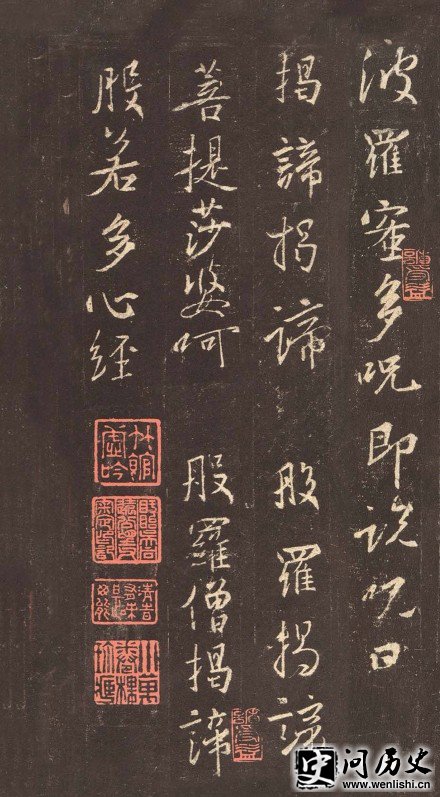 波羅蜜多呪即說呪曰
揭諦揭諦 般羅揭諦
菩提莎婆呵 般羅僧揭諦
般若多心經
问历史
www.wenlishi.cn